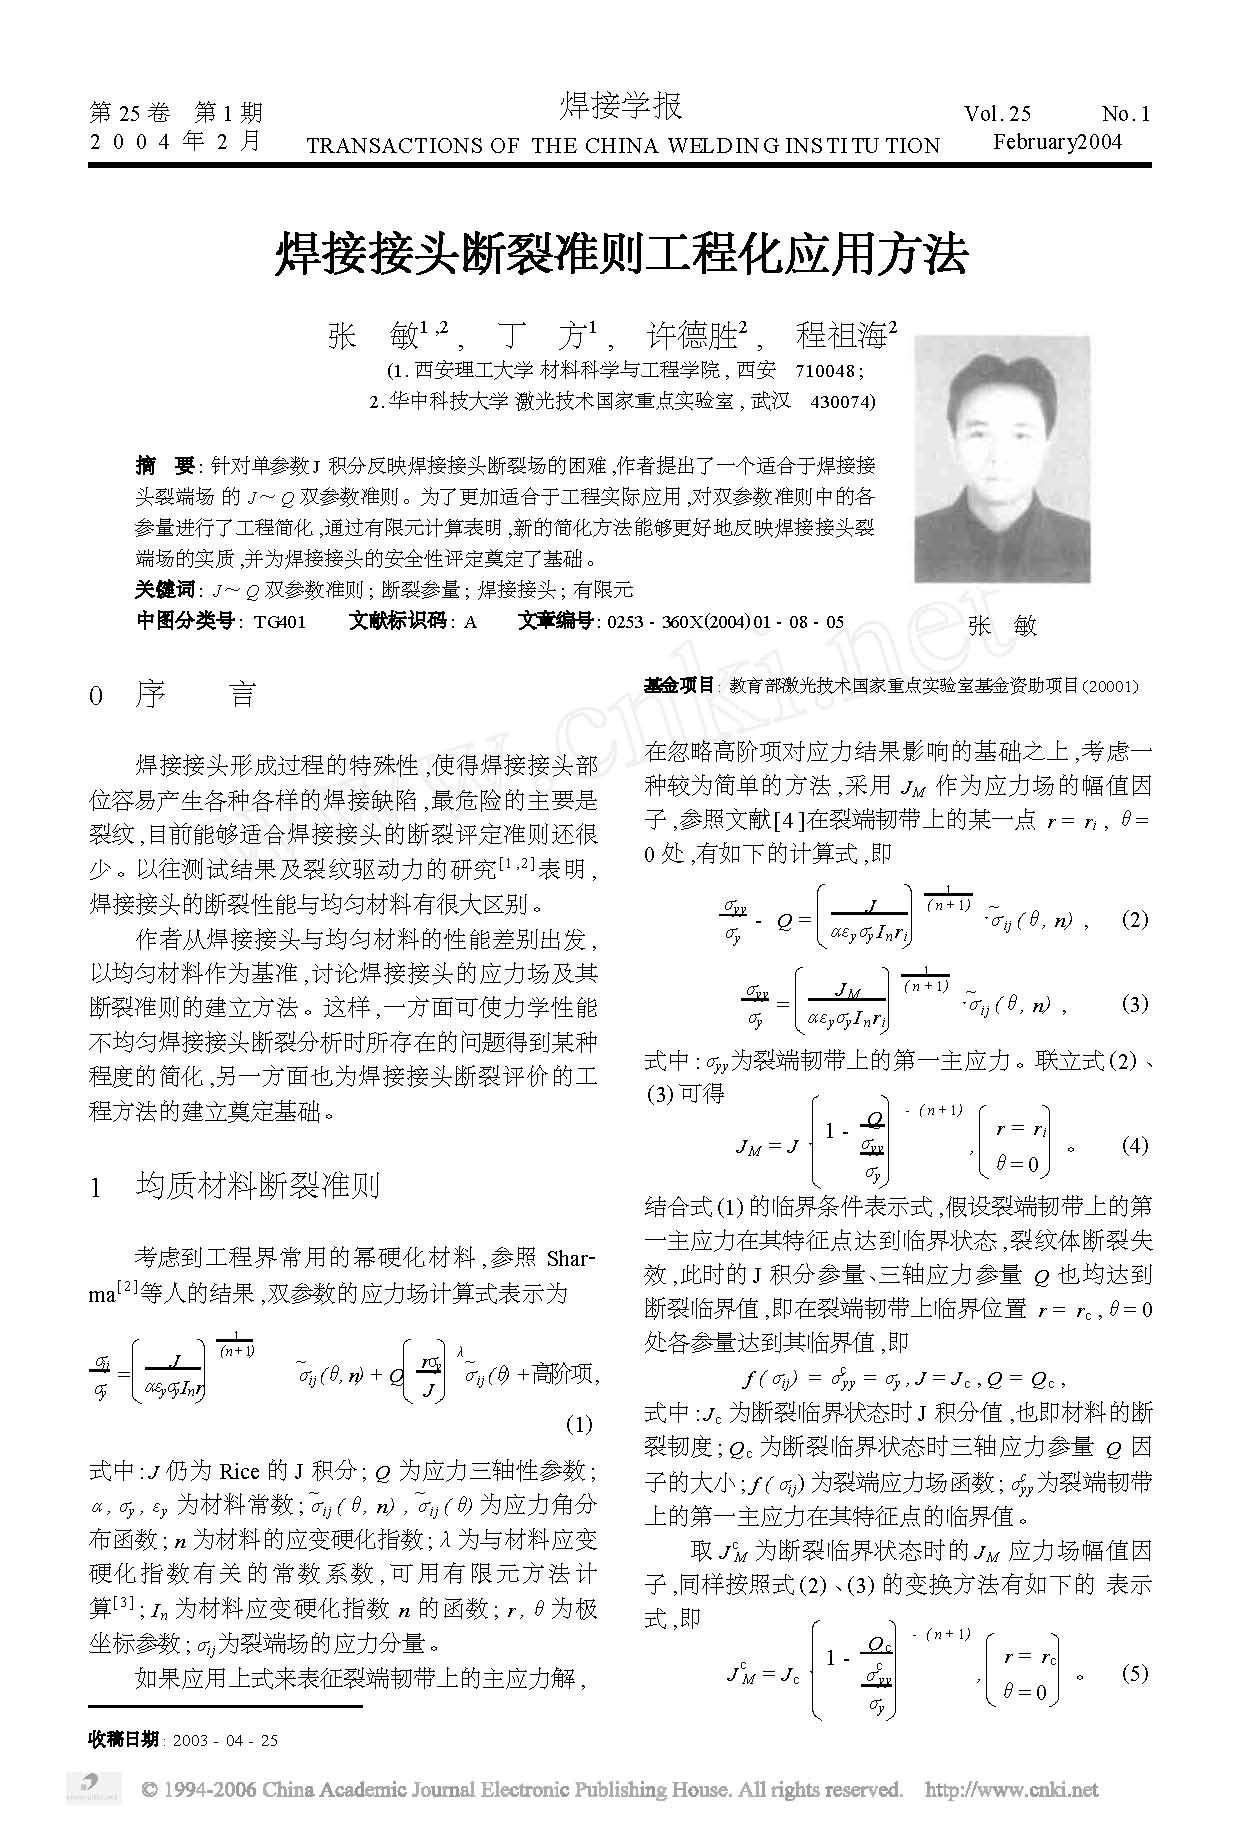 第25卷 第1期
2004年2月
焊接学报
TRANSACTIONS OF THE CHINA WELDING INSTITUTION
Vol.25 No.1
February2004
焊接接头断裂准则工程化应用方法
张 敏1,2, 丁 方1, 许德胜2, 程祖海2
(1.西安理工大学 材料科学与工程学院,西安 710048;
2.华中科技大学 激光技术国家重点实验室,武汉 430074)
摘 要:针对单参数J积分反映焊接接头断裂场的困难,作者提出了一个适合于焊接接
头裂端场的J~Q双参数准则。为了更加适合于工程实际应用,对双参数准则中的各
参量进行了工程简化,通过有限元计算表明,新的简化方法能够更好地反映焊接接头裂
端场的实质,并为焊接接头的安全性评定奠定了基础。
关键词:J~Q双参数准则;断裂参量;焊接接头;有限元
中图分类号:TG401 文献标识码:A 文章编号:0253-360X(2004)01-08-05
张 敏
0 序 言
焊接接头形成过程的特殊性,使得焊接接头部
位容易产生各种各样的焊接缺陷,最危险的主要是
裂纹,目前能够适合焊接接头的断裂评定准则还很
少。以往测试结果及裂纹驱动力的研究[1,2]表明,
焊接接头的断裂性能与均匀材料有很大区别。
作者从焊接接头与均匀材料的性能差别出发,
以均匀材料作为基准,讨论焊接接头的应力场及其
断裂准则的建立方法。这样,一方面可使力学性能
不均匀焊接接头断裂分析时所存在的问题得到某种
程度的简化,另一方面也为焊接接头断裂评价的工
程方法的建立奠定基础。
1 均质材料断裂准则
考虑到工程界常用的幂硬化材料,参照 Shar-
ma[2]等人的结果,双参数的应力场计算式表示为
σij/σy = (J/(αεyσyInr))^(1/(n+1)) σ̃ij(θ,n) + Q(rσy/J)^λ σ̃ij(θ) + 高阶项,
(1)
式中:J仍为Rice的J积分;Q为应力三轴性参数;
α,σy,εy 为材料常数;σ̃ij(θ,n),σ̃ij(θ)为应力角分
布函数;n为材料的应变硬化指数;λ为与材料应变
硬化指数有关的常数系数,可用有限元方法计
算[3];In为材料应变硬化指数n的函数;r,θ为极
坐标参数;σij为裂端场的应力分量。
如果应用上式来表征裂端韧带上的主应力解,
收稿日期:2003-04-25
基金项目:教育部激光技术国家重点实验室基金资助项目(20001)
在忽略高阶项对应力结果影响的基础之上,考虑一
种较为简单的方法,采用JM作为应力场的幅值因
子,参照文献[4]在裂端韧带上的某一点r=ri,θ=
0处,有如下的计算式,即
σyy/σy - Q = (J/(αεyσyInri))^(1/(n+1)) ·σ̃ij(θ,n), (2)
σyy/σy = (JM/(αεyσyInri))^(1/(n+1)) ·σ̃ij(θ,n), (3)
式中:σyy为裂端韧带上的第一主应力。联立式(2)、
(3)可得
JM = J·(1 - Q/(σyy/σy))^-(n+1), (r=ri θ=0)。 (4)
结合式(1)的临界条件表示式,假设裂端韧带上的第
一主应力在其特征点达到临界状态,裂纹体断裂失
效,此时的J积分参量、三轴应力参量Q也均达到
断裂临界值,即在裂端韧带上临界位置r=rc,θ=0
处各参量达到其临界值,即
f(σij) = σcyy = σy, J = Jc, Q = Qc,
式中:Jc为断裂临界状态时J积分值,也即材料的断
裂韧度;Qc为断裂临界状态时三轴应力参量Q因
子的大小;f(σij)为裂端应力场函数;σcyy为裂端韧带
上的第一主应力在其特征点的临界值。
取JcM为断裂临界状态时的JM应力场幅值因
子,同样按照式(2)、(3)的变换方法有如下的 表示
式,即
JcM = Jc·(1 - Qc/(σcyy/σy))^-(n+1), (r=rc θ=0)。 (5)
www.cnki.net
© 1994-2006 China Academic Journal Electronic Publishing House. All rights reserved. http://www.cnki.net